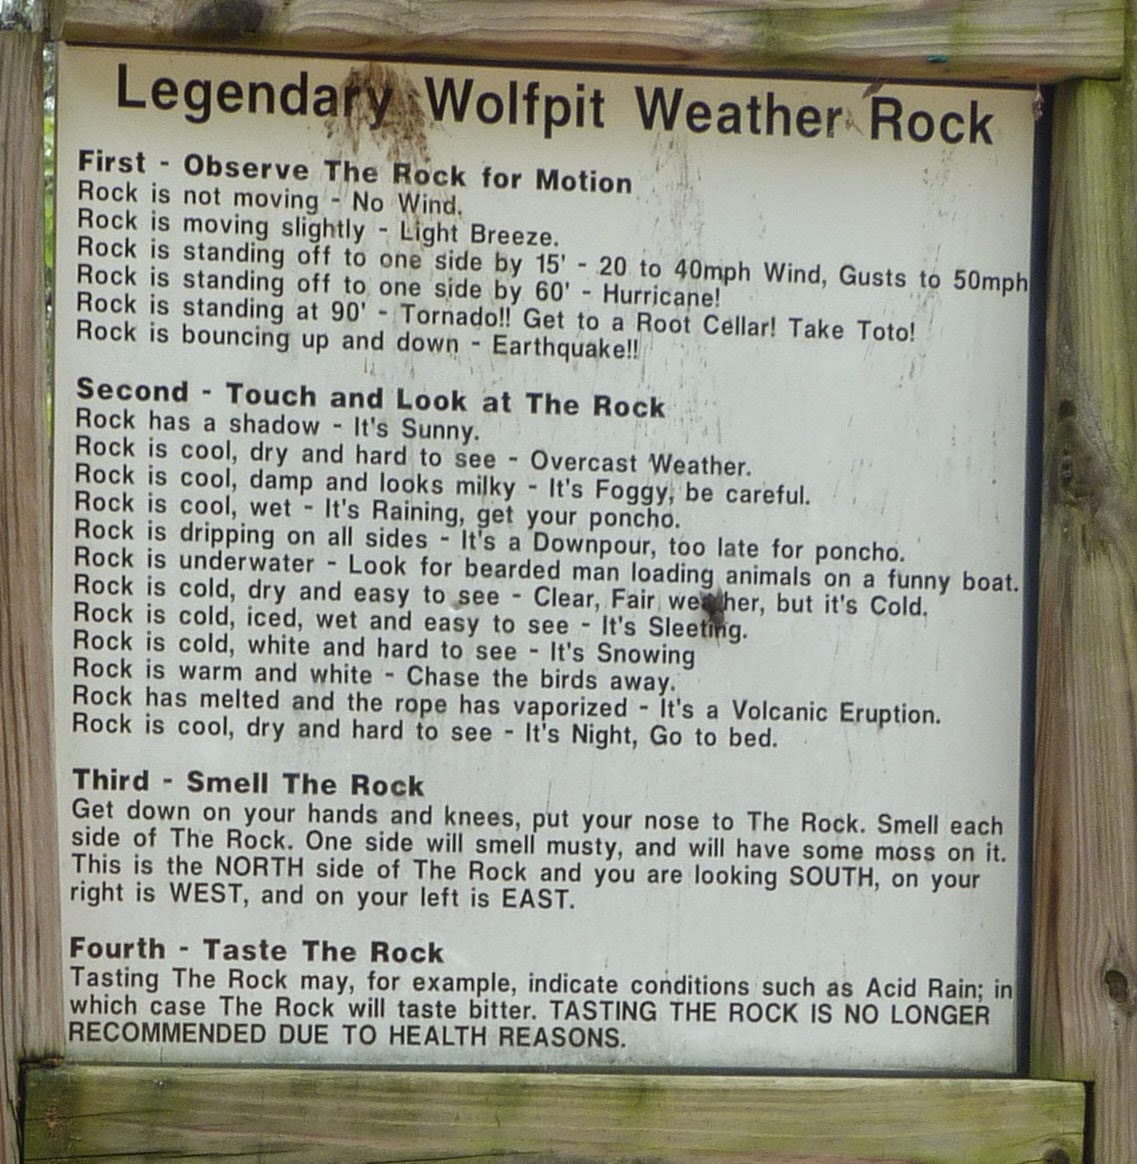 Legendary Wolfpit Weather Rock
First - Observe The Rock for Motion
Rock is not moving - No Wind.
Rock is moving slightly - Light Breeze.
Rock is standing off to one side by 15' - 20 to 40mph Wind, Gusts to 50mph
Rock is standing off to one side by 60' - Hurricane!
Rock is standing at 90' - Tornado!! Get to a Root Cellar! Take Toto!
Rock is bouncing up and down - Earthquake!!
Second - Touch and Look at The Rock
Rock has a shadow - It's Sunny.
Rock is cool, dry and hard to see - Overcast Weather.
Rock is cool, damp and looks milky - It's Foggy, be careful.
Rock is cool, wet - It's Raining, get your poncho.
Rock is dripping on all sides - It's a Downpour, too late for poncho.
Rock is underwater - Look for bearded man loading animals on a funny boat.
Rock is cold, dry and easy to see - Clear, Fair weather, but it's Cold.
Rock is cold, iced, wet and easy to see - It's Sleeting.
Rock is cold, white and hard to see - It's Snowing
Rock is warm and white - Chase the birds away.
Rock has melted and the rope has vaporized - It's a Volcanic Eruption.
Rock is cool, dry and hard to see - It's Night, Go to bed.
Third - Smell The Rock
Get down on your hands and knees, put your nose to The Rock. Smell each
side of The Rock. One side will smell musty, and will have some moss on it.
This is the NORTH side of The Rock and you are looking SOUTH, on your
right is WEST, and on your left is EAST.
Fourth - Taste The Rock
Tasting The Rock may, for example, indicate conditions such as Acid Rain; in
which case The Rock will taste bitter. TASTING THE ROCK IS NO LONGER
RECOMMENDED DUE TO HEALTH REASONS.